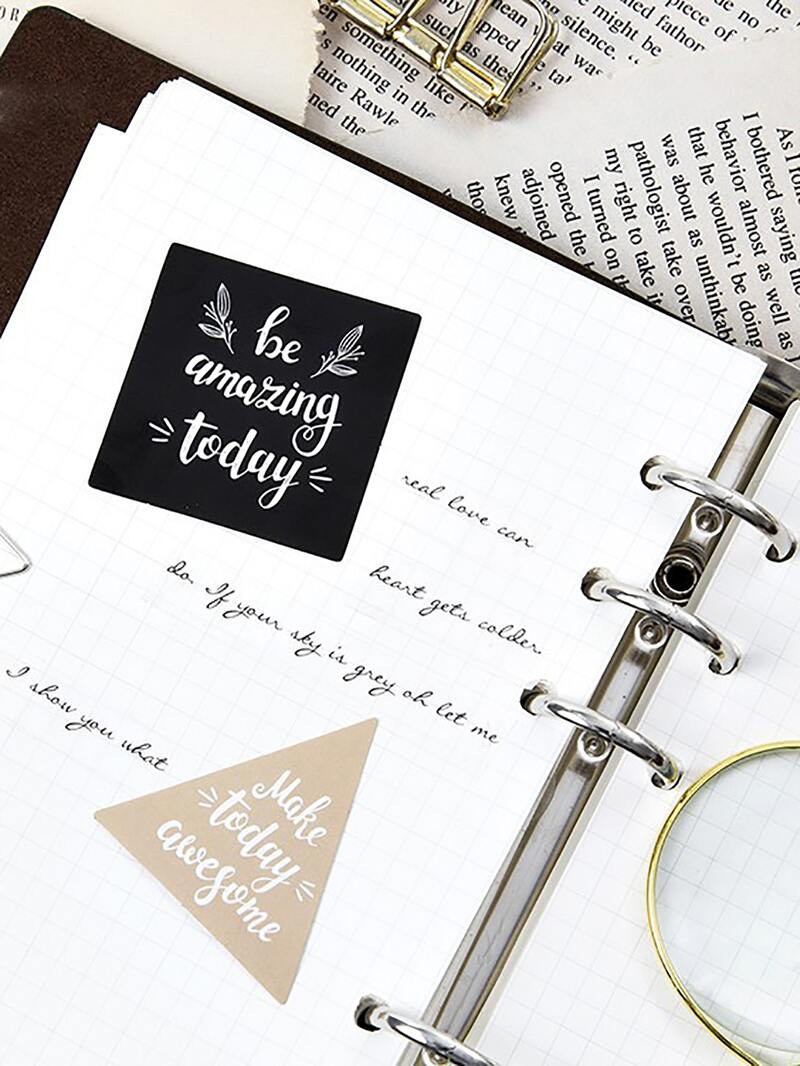 be
amazing
today
real love can
heart gets colder.
do. If your sky is grey oh let me
I show you what
Make
today
awesome
mean
piece of
might be
silence.
such as these
en something like
's nothing in the
laire Rawle
ned the
As I
I bothered saying
behavior almost as well as I
that he wouldn't be doing
was about as unthinkab
pathologist take over
my right to take i
I turned on th
opened the
adjoined
knew